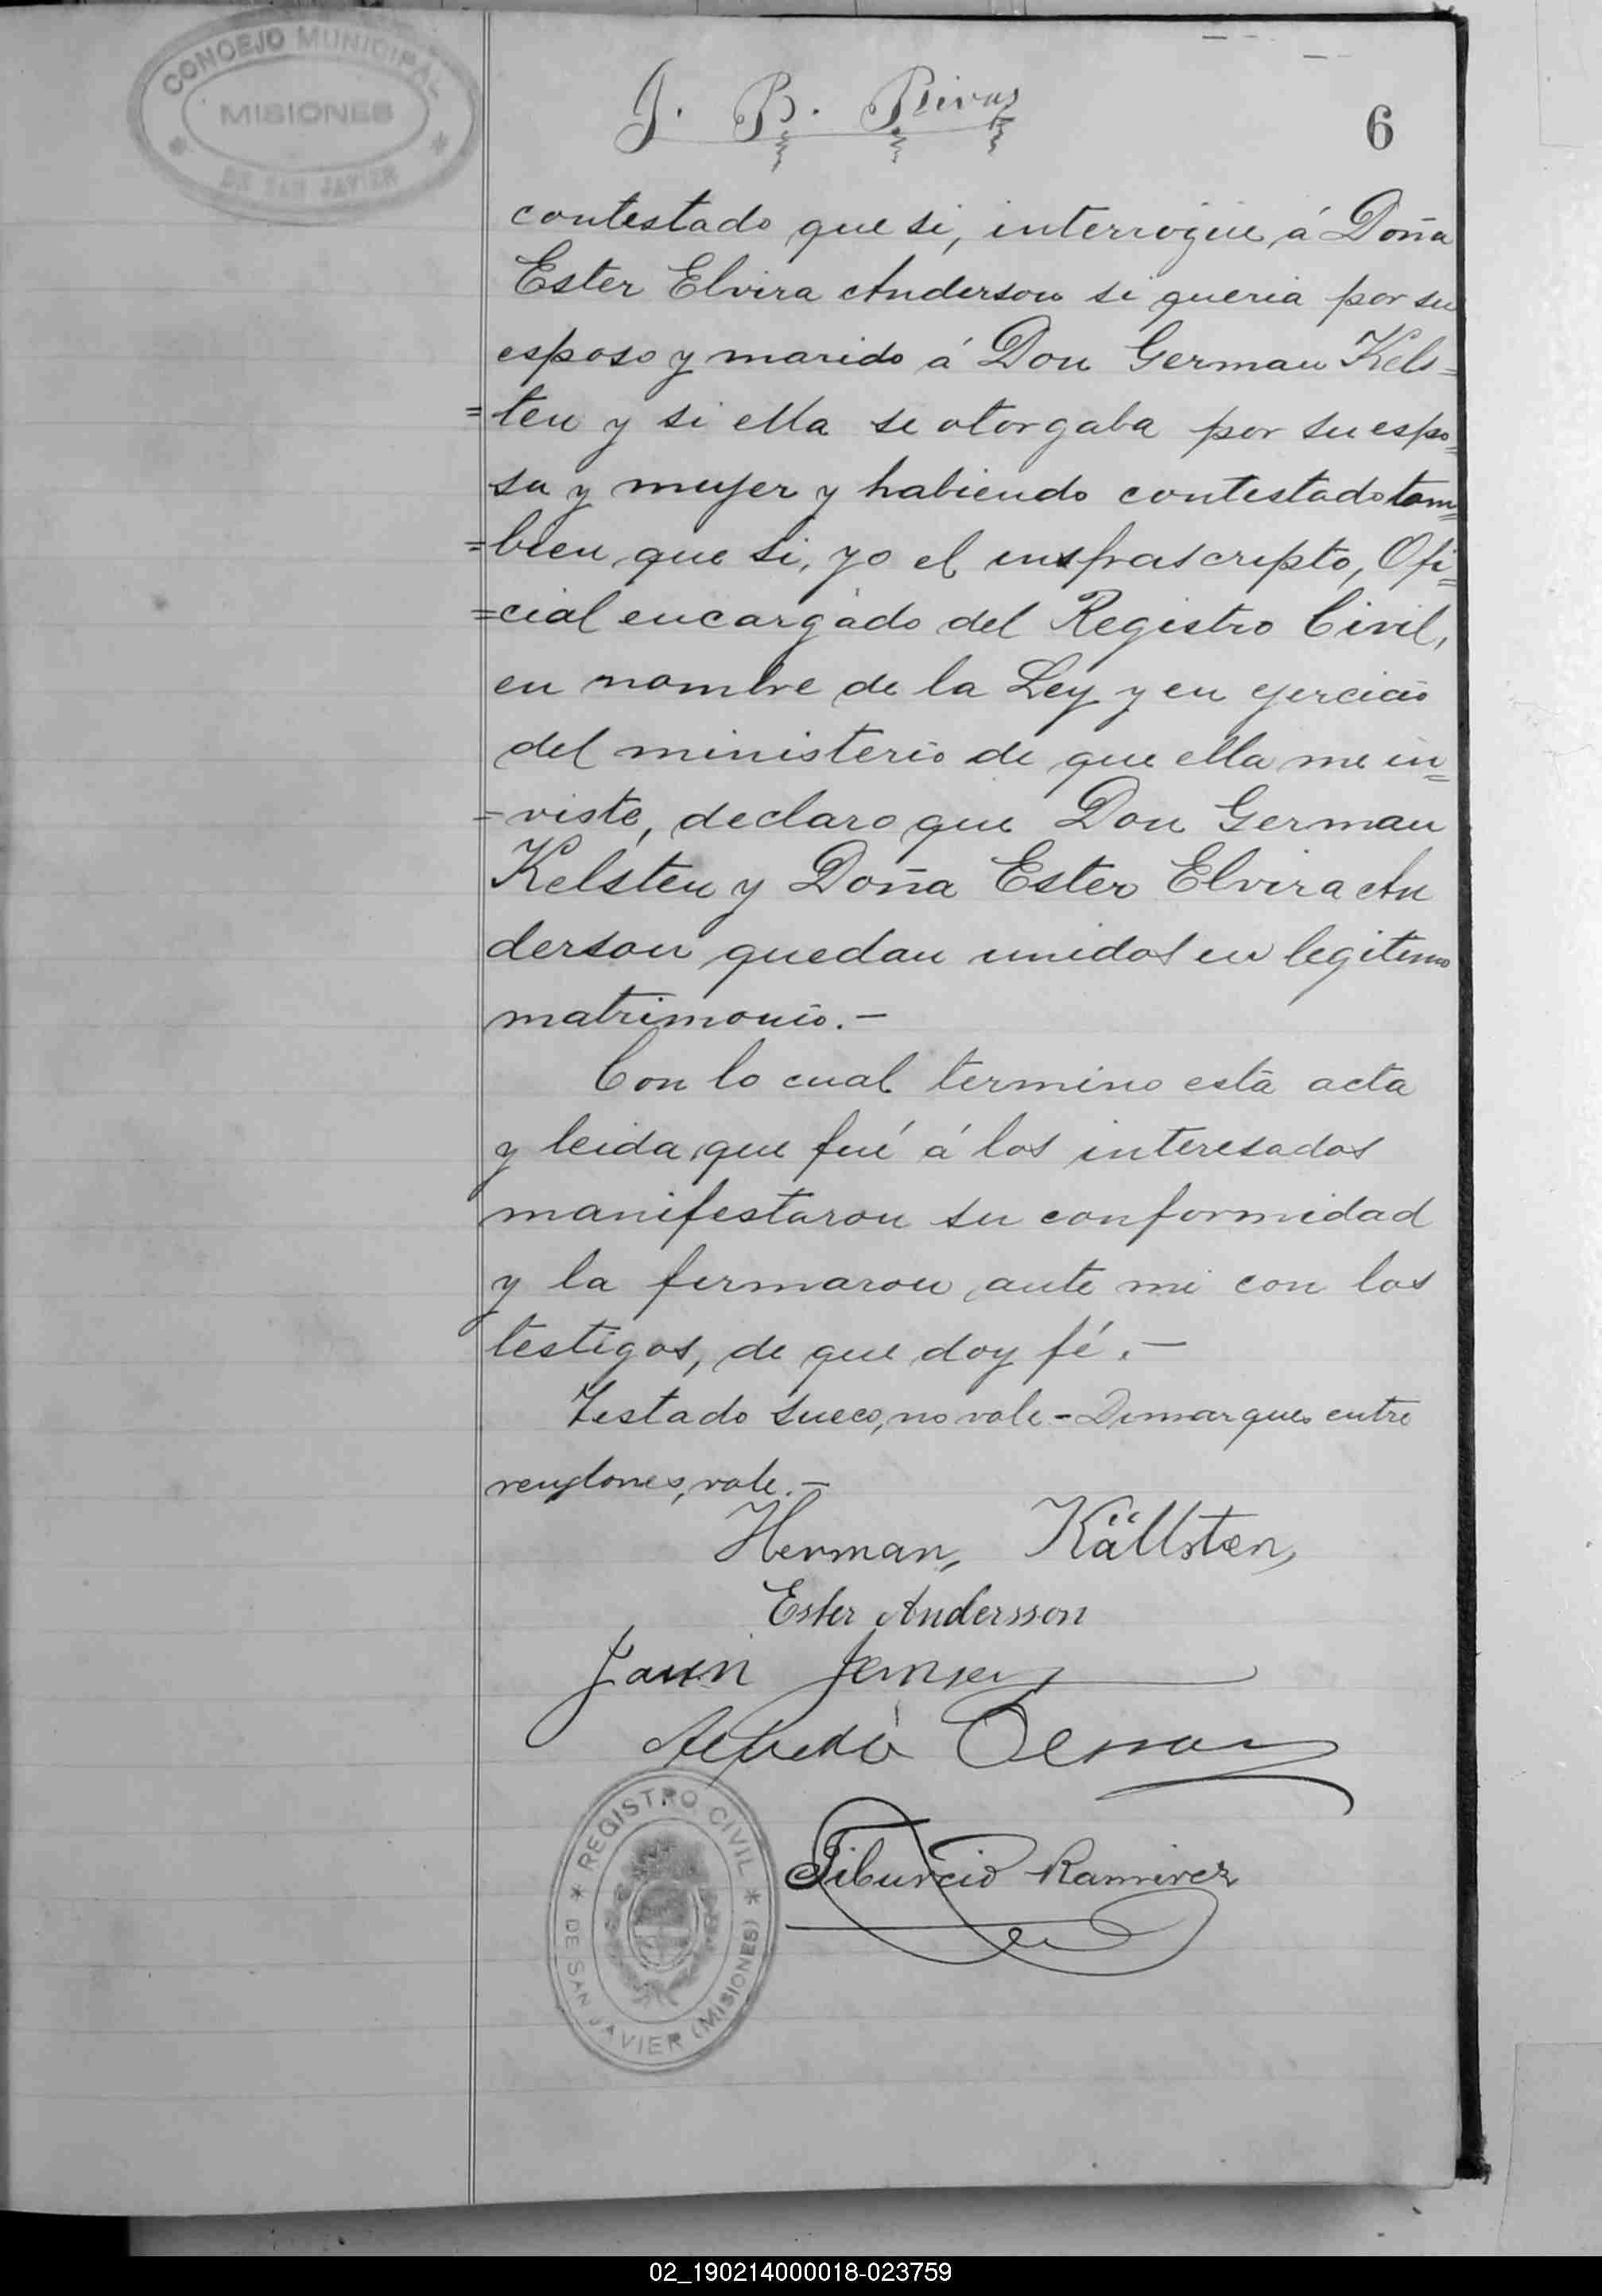 CONCEJO MUNICIPAL
MISIONES
DE SAN JAVIER
J. B. Rivas
6
contestado que si, interrogué á Doña
Ester Elvira Anderson si queria por su
esposo y marido á Don German Kels=
=ten y si ella se otorgaba por su espo=
sa y mujer y habiendo contestado tam=
=bien que si, yo el insfrascripto, Ofi=
=cial encargado del Registro Civil,
en nombre de la Ley y en ejercicio
del ministerio de que ella me in=
=viste, declaro que Don German
Kelsten y Doña Ester Elvira An
derson quedan unidos en legitimo
matrimonio.—
Con lo cual termino esta acta
y leida que fué á los interesados
manifestaron su conformidad
y la firmaron ante mi con los
testigos, de que doy fé.—
Testado sueco, no vale - Dimarques entre
renglones, vale.—
Herman Källsten
Ester Andersson
Jensen
Alfredo
Tiburcio Ramirez
REGISTRO CIVIL
DE SAN JAVIER (MISIONES)
02_190214000018-023759